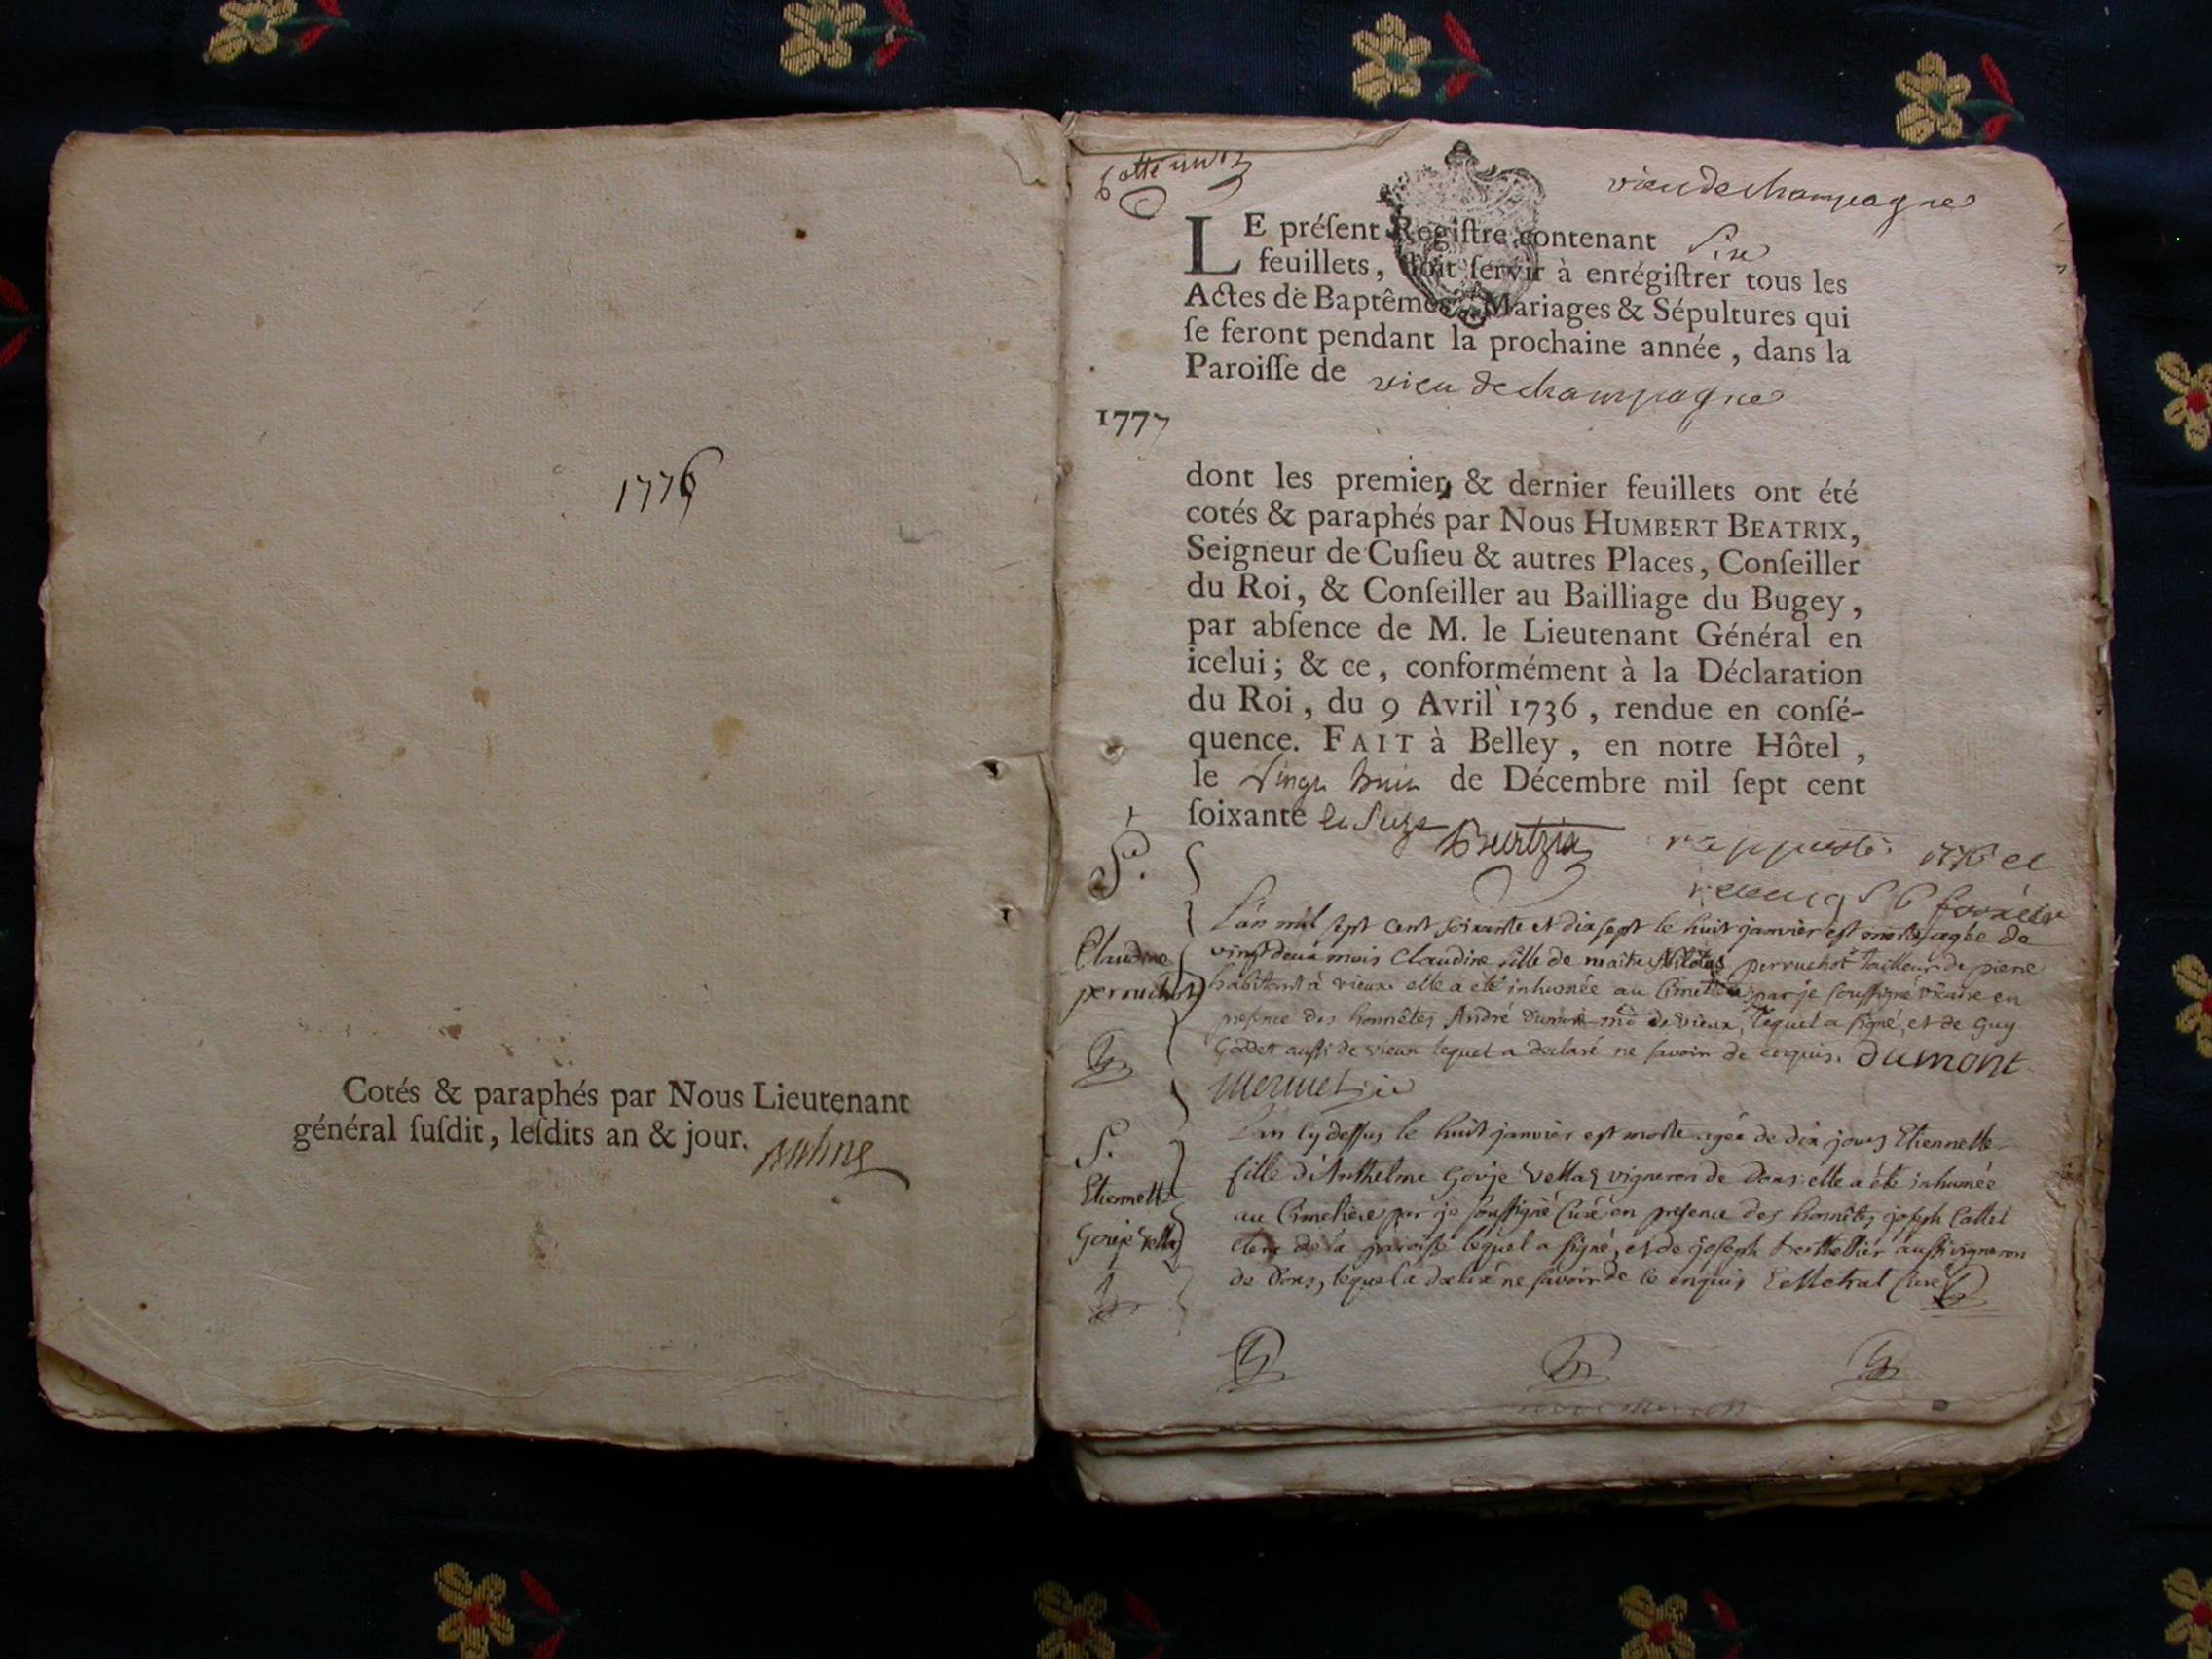 1776
Cotés & paraphés par Nous Lieutenant
général ſuſdit, leſdits an & jour.
vieu de champagne
LE préſent Regiſtre contenant Six
feuillets, doit ſervir à enrégiſtrer tous les
Actes de Baptêmes, Mariages & Sépultures qui
ſe feront pendant la prochaine année, dans la
Paroiſſe de vieu de champagne
1777
dont les premier & dernier feuillets ont été
cotés & paraphés par Nous HUMBERT BEATRIX,
Seigneur de Cuſieu & autres Places, Conſeiller
du Roi, & Conſeiller au Bailliage du Bugey,
par abſence de M. le Lieutenant Général en
icelui; & ce, conformément à la Déclaration
du Roi, du 9 Avril 1736, rendue en conſé-
quence. FAIT à Belley, en notre Hôtel,
le Vingt huit de Décembre mil ſept cent
ſoixante et Seize
S.re
Claudine
perruchot
L'an mil sept cent soixante et dix sept le huit janvier est morte agée de
vingt deux mois Claudine fille de maitre Nicolas perruchot tailleur de pierre
habitant à vieux. elle a été inhumée au Cimetière par je soussigné vicaire en
presence des honnêtes André dumont md de vieux, lequel a signé, et de Guy
Goddet aussi de vieux lequel a declaré ne savoir de enquis. dumont
mermet vic
S.
Etiennette
Gonje Vellaz
L'an cy dessus le huit janvier est morte agée de dix jours Etiennette
fille d'Anthelme Gonje Vellaz vigneron de Dons. elle a été inhumée
au Cimetière par je soussigné Curé en presence des honnêtes joseph Cattet
clerc de la paroisse lequel a signé, et de joseph berthellier aussi vigneron
de Dons, lequel a declaré ne savoir de ce enquis Curé